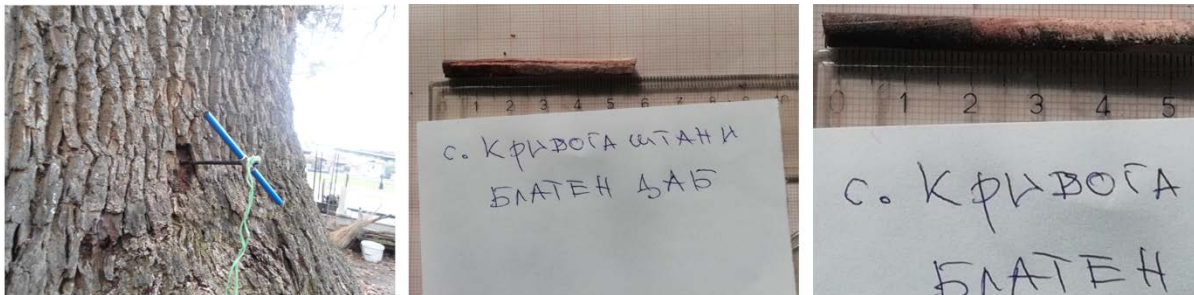 0 1 2 3 4 5 6 7 8 9 10
с. КРИВОГАШТАНИ
БЛАТЕН ДАБ
0 1 2 3 4 5
с. КРИВОГА
БЛАТЕН